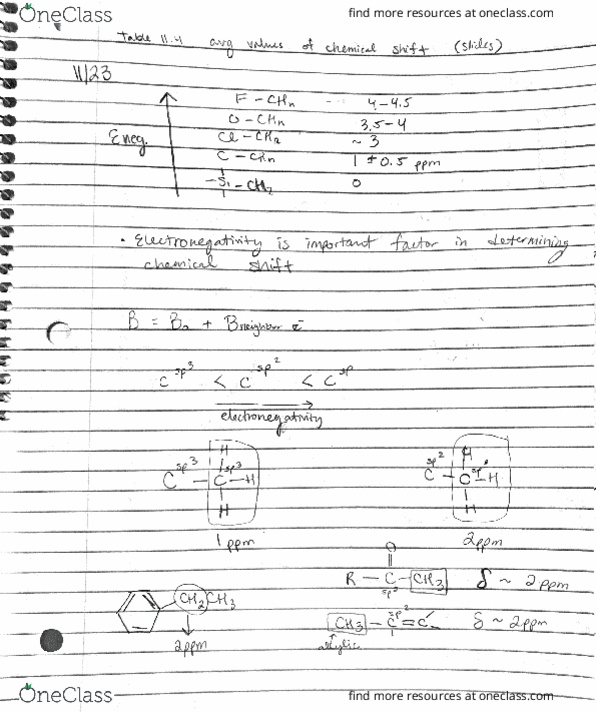 OneClass
find more resources at oneclass.com
Table 11.4 avg values of chemical shift (slides)
11/23
F - CHn -- 4-4.5
O - CHn 3.5-4
Eneg. Cl - CHn ~ 3
C - CHn 1 ± 0.5 ppm
- Si - CH2 0
• Electronegativity is important factor in determining
chemical shift
B = B0 + Bneighbor e-
C sp3 < C sp2 < C sp
electronegativity
H H
C sp3 - C sp3 - H C sp2 - C sp3 - H
H H
1 ppm 2 ppm
O
R - C - CH3 δ ~ 2 ppm
sp2
CH2CH3
CH3 - C sp2 = C δ ~ 2 ppm
allylic
2ppm
OneClass
find more resources at oneclass.com